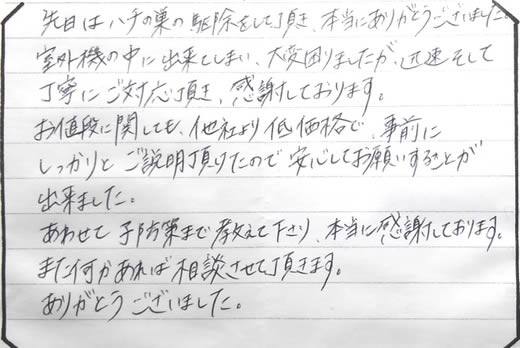 先日はハチの巣の駆除をして頂き、本当にありがとうございました。
室外機の中に出来てしまい、大変困りましたが、迅速そして
丁寧にご対応頂き、感謝しております。
お値段に関しても、他社より低価格で、事前に
しっかりとご説明頂けたので安心してお願いすることが
出来ました。
あわせて予防策まで教えて下さり、本当に感謝しております。
また何かあれば相談させて頂きます。
ありがとうございました。